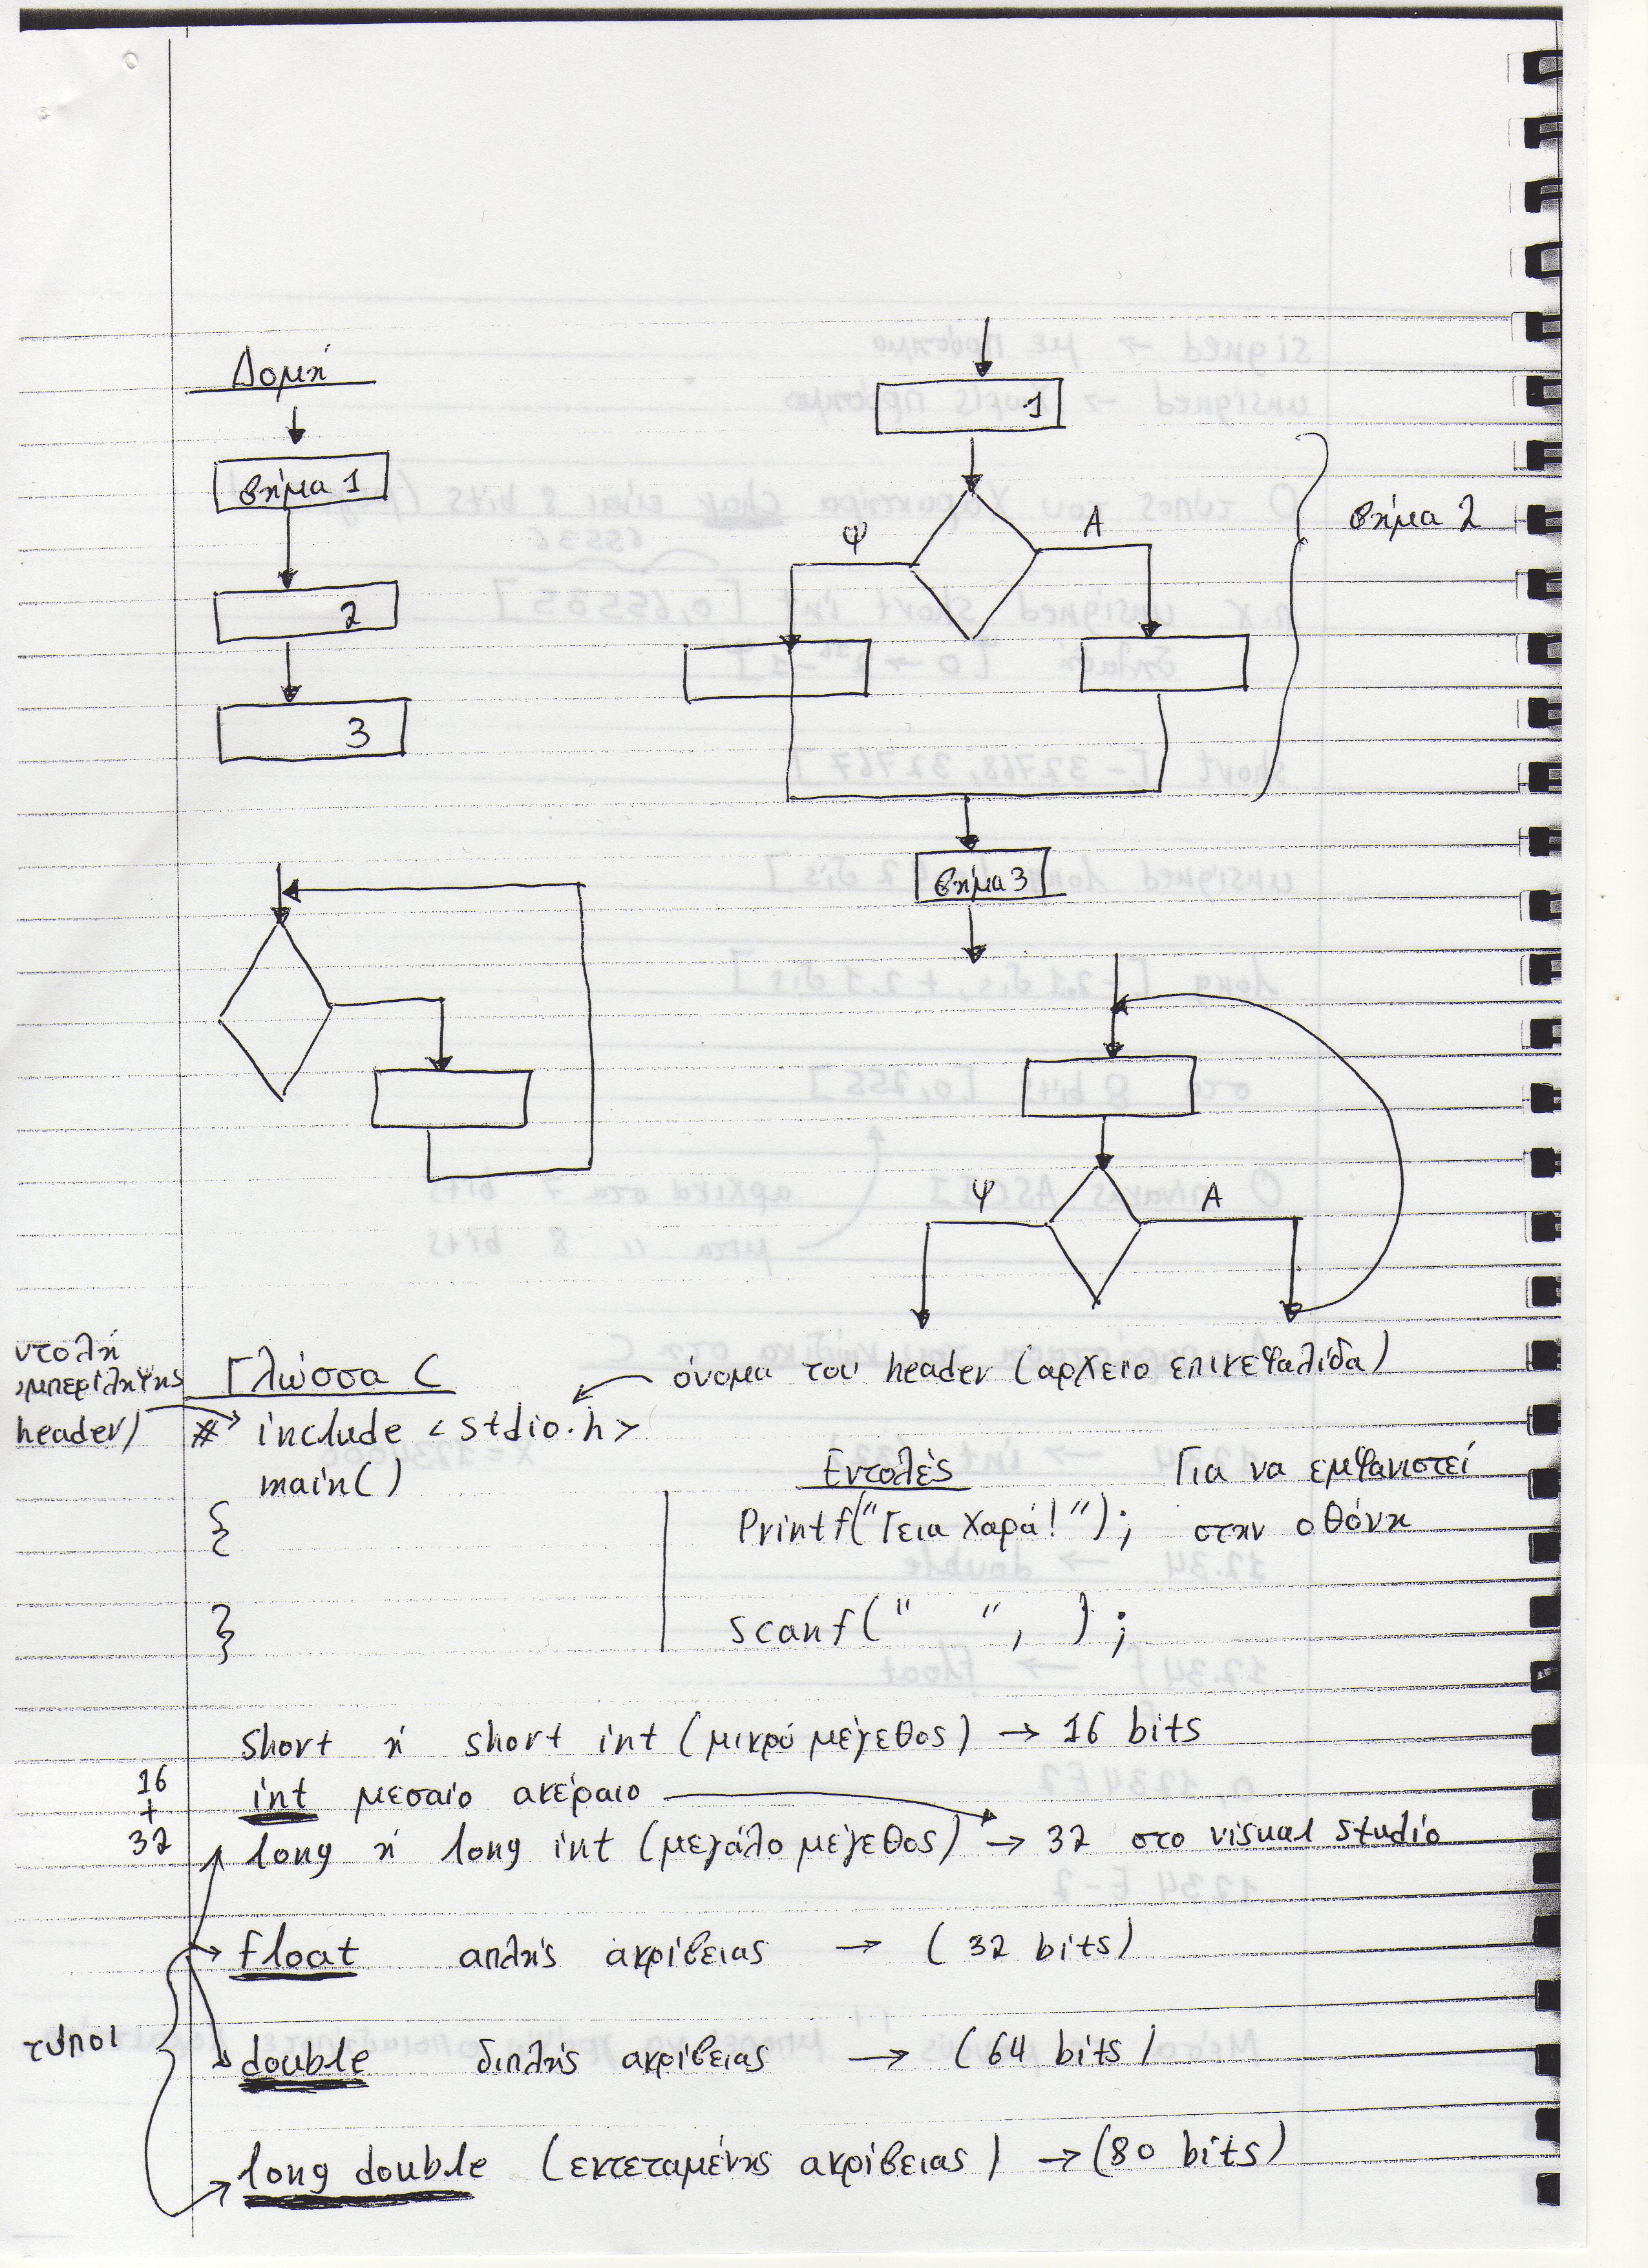 Δομή
βήμα 1
2
3
1
Ψ
Α
βήμα 2
βήμα 3
Ψ
Α
ντολή
μπερίληψης
header)
Γλώσσα C
όνομα του header (αρχείο επικεφαλίδα)
# include <stdio.h>
main()
{
}
Εντολές
Printf("Γεια Χαρά!");
Για να εμφανιστεί
στην οθόνη
scanf("  ", );
short ή short int (μικρό μέγεθος) → 16 bits
16
+
32
int μεσαίο ακέραιο
long ή long int (μεγάλο μέγεθος) → 32 στο visual studio
τύποι
float απλής ακρίβειας → (32 bits)
double διπλής ακρίβειας → (64 bits)
long double (εκτεταμένης ακρίβειας) → (80 bits)